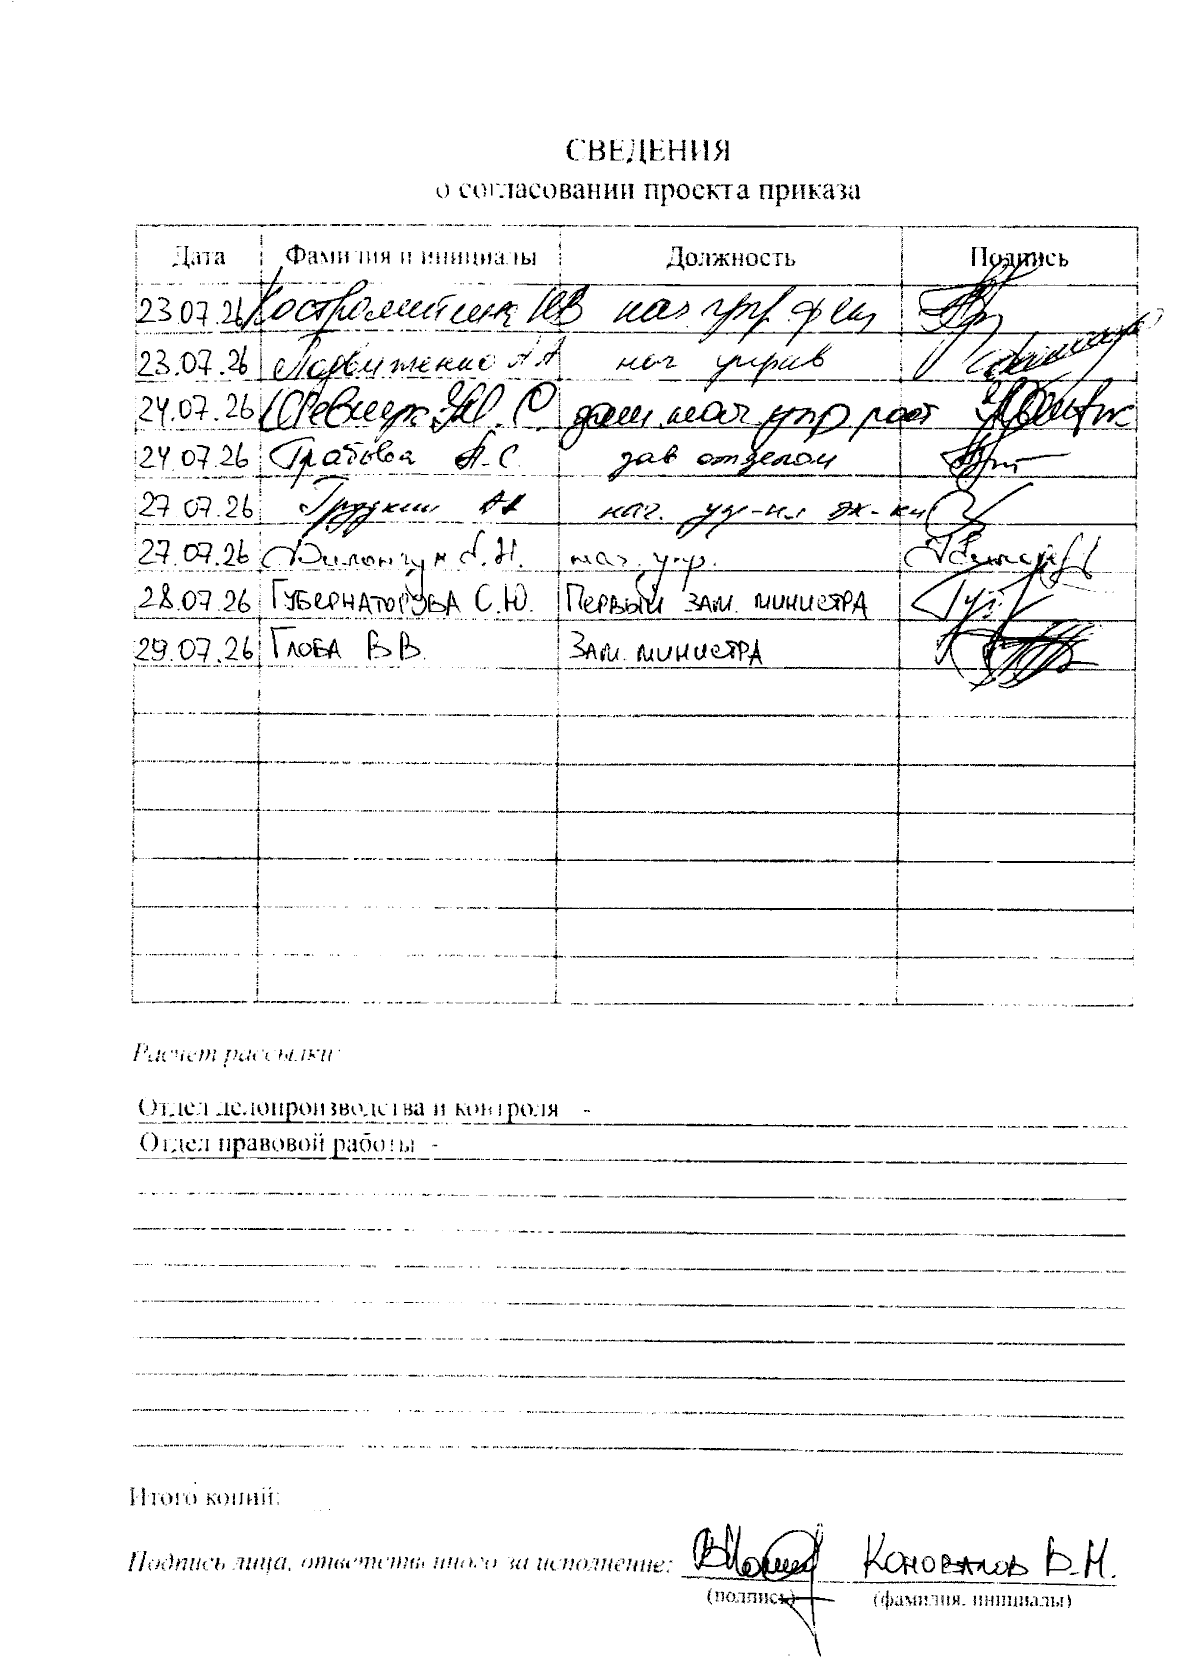 СВЕДЕНИЯ
о согласовании проекта приказа
Дата Фамилия и инициалы Должность Подпись
23.07.26 Костромитина ЮВ нач упр
23.07.26 Подвиженко А А нач управ
24.07.26 Ю. С. нач упр
24.07.26 А.С. зав отделом
27.07.26 нач.
27.07.26 нач. упр.
28.07.26 ГУБЕРНАТОРОВА С.Ю. ПЕРВЫЙ ЗАМ. МИНИСТРА
29.07.26 ГЛОБА В В. ЗАМ. МИНИСТРА
Расчет рассылки:
Отдел делопроизводства и контроля -
Отдел правовой работы -
Итого копий:
Подпись лица, ответственного за исполнение: КОНОВАЛОВ В.Н.
(подпись) (фамилия, инициалы)